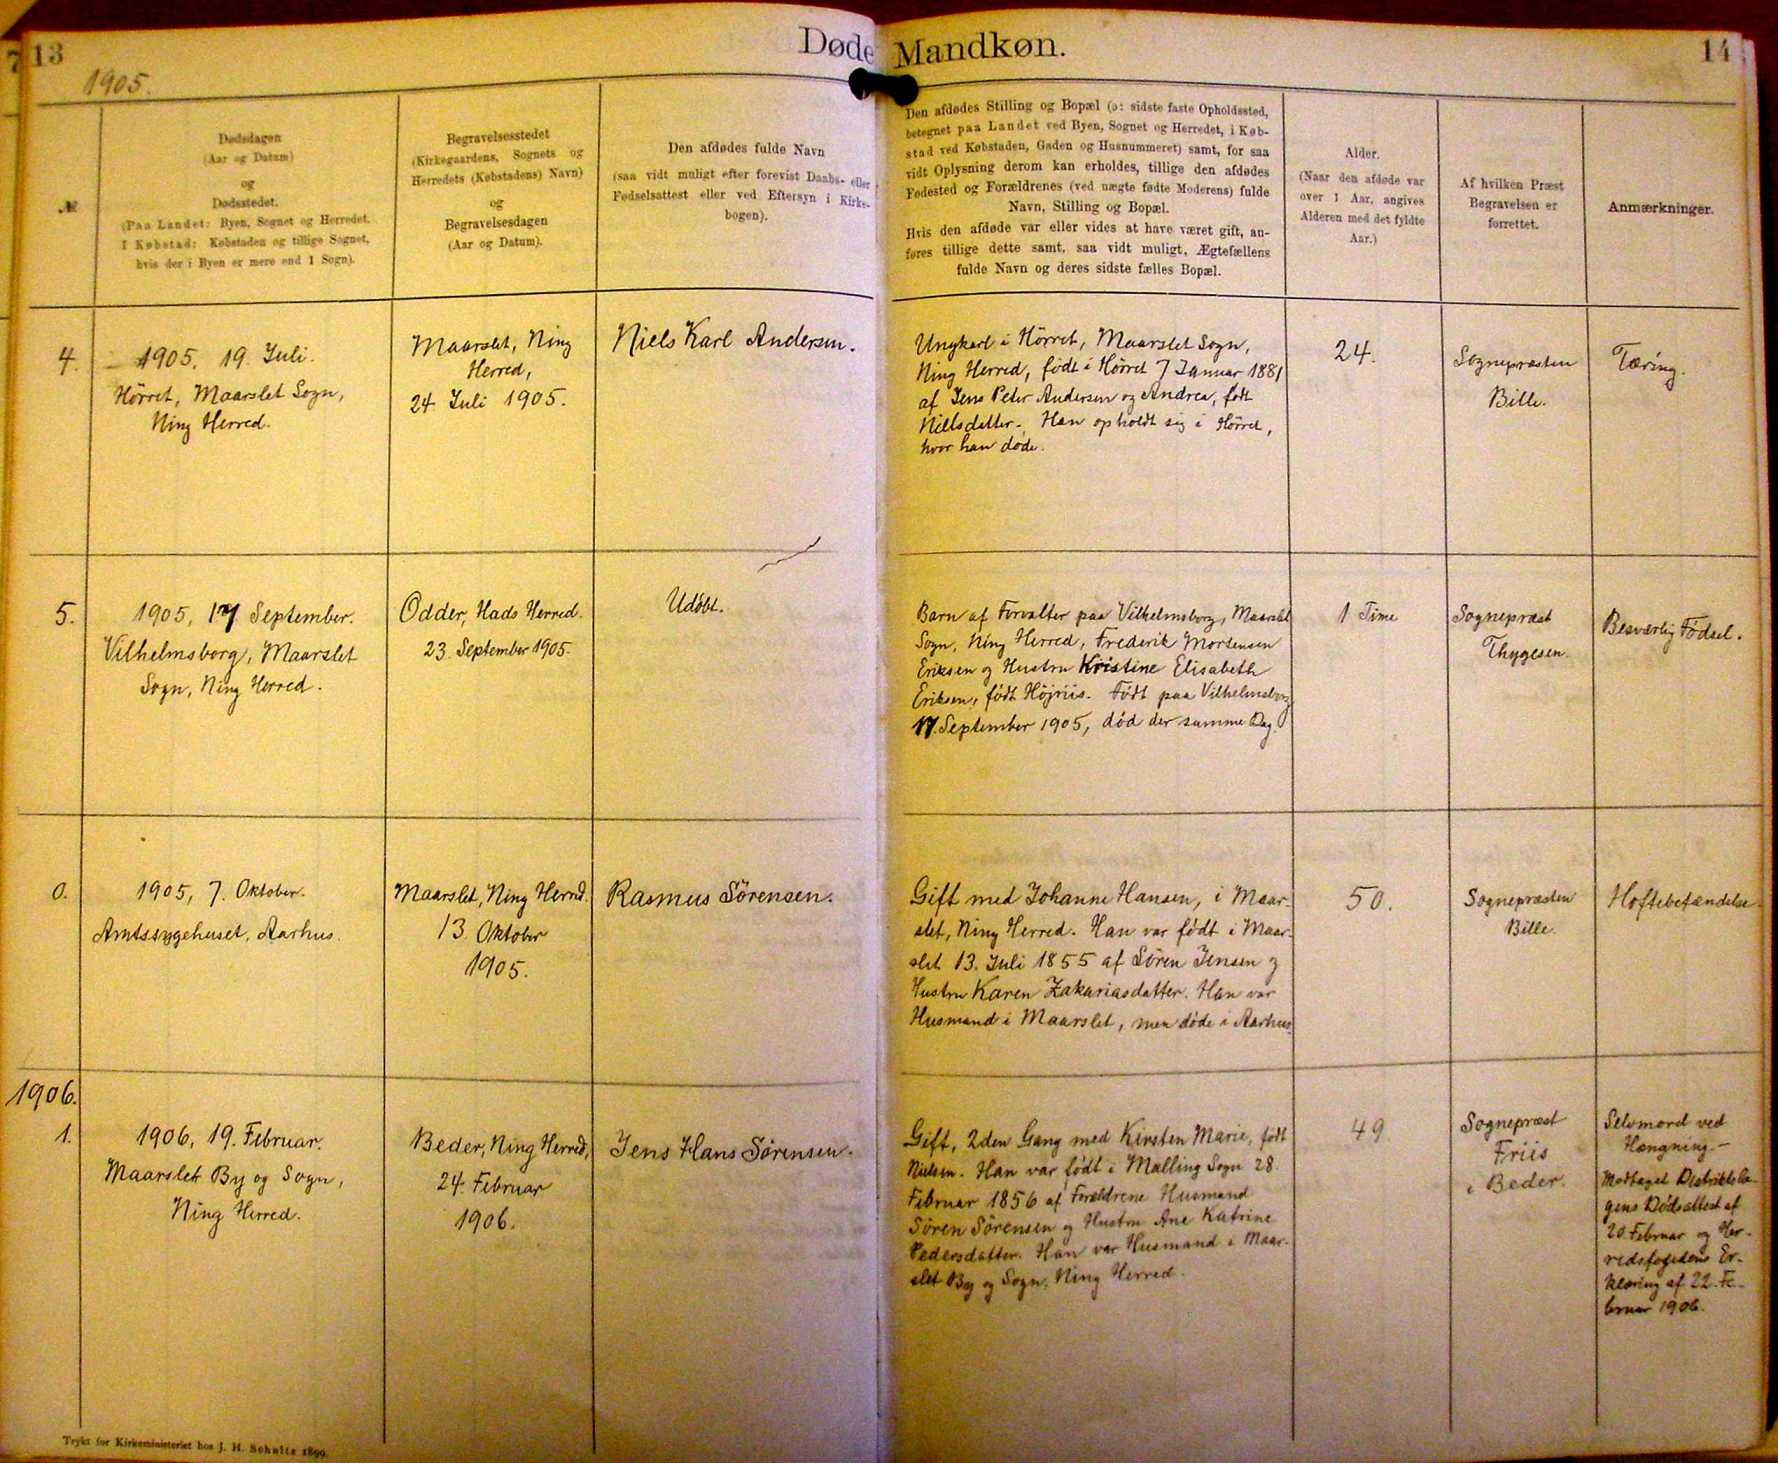 7
13
Døde Mandkøn.
14
1905.
№
Dødsdagen
(Aar og Datum)
og
Dødsstedet.
(Paa Landet: Byen, Sognet og Herredet.
I Købstad: Købstaden og tillige Sognet,
hvis der i Byen er mere end 1 Sogn).
Begravelsesstedet
(Kirkegaardens, Sognets og
Herredets (Købstadens) Navn)
og
Begravelsesdagen
(Aar og Datum).
Den afdødes fulde Navn
(saa vidt muligt efter forevist Daabs- eller
Fødselsattest eller ved Eftersyn i Kirke-
bogen).
Den afdødes Stilling og Bopæl (ɔ: sidste faste Opholdssted,
betegnet paa Landet ved Byen, Sognet og Herredet, i Køb-
stad ved Købstaden, Gaden og Husnummeret) samt, for saa
vidt Oplysning derom kan erholdes, tillige den afdødes
Fødested og Forældrenes (ved uægte fødte Moderens) fulde
Navn, Stilling og Bopæl.
Hvis den afdøde var eller vides at have været gift, an-
føres tillige dette samt, saa vidt muligt, Ægtefællens
fulde Navn og deres sidste fælles Bopæl.
Alder.
(Naar den afdøde var
over 1 Aar, angives
Alderen med det fyldte
Aar.)
Af hvilken Præst
Begravelsen er
forrettet.
Anmærkninger.
4.
1905, 19. Juli.
Hörret, Maarslet Sogn,
Ning Herred.
Maarslet, Ning
Herred,
24. Juli 1905.
Niels Karl Andersen.
Ungkarl i Hörret, Maarslet Sogn,
Ning Herred, født i Hörret 7 Januar 1881
af Jens Peter Andersen og Andrea, født
Nielsdatter. Han opholdt sig i Hörret,
hvor han døde.
24.
Sognepræsten
Bille.
Tæring.
5.
1905, 17 September.
Vilhelmsborg, Maarslet
Sogn, Ning Herred.
Odder, Hads Herred.
23. September 1905.
Udøbt.
Barn af Forvalter paa Vilhelmsborg, Maarslet
Sogn, Ning Herred, Frederik Mortensen
Eriksen og Hustru Kristine Elisabeth
Eriksen, født Höjriis. Født paa Vilhelmsborg
17. September 1905, død der samme Dag.
1 Time
Sognepræst
Thygesen.
Besværlig Fødsel.
0.
1905, 7. Oktober.
Amtssygehuset, Aarhus.
Maarslet, Ning Herred.
13. Oktober
1905.
Rasmus Sörensen.
Gift med Johanne Hansen, i Maar-
slet, Ning Herred. Han var født i Maar-
slet 13. Juli 1855 af Sören Jensen og
Hustru Karen Zakariasdatter. Han var
Husmand i Maarslet, men døde i Aarhus.
50.
Sognepræsten
Bille.
Hoftebetændelse.
1906.
1.
1906, 19. Februar.
Maarslet By og Sogn,
Ning Herred.
Beder, Ning Herred,
24. Februar
1906.
Jens Hans Sörensen.
Gift, 2den Gang med Kirsten Marie, født
Nielsen. Han var født i Malling Sogn 28.
Februar 1856 af Forældrene Husmand
Sören Sörensen og Hustru Ane Katrine
Pedersdatter. Han var Husmand i Maar-
slet By og Sogn, Ning Herred.
49
Sognepræst
Friis
i Beder.
Selvmord ved
Hængning.-
Modtaget Distriktslæ-
gens Dødsattest af
20. Februar og Her-
redsfogedens Er-
klæring af 22. Fe-
bruar 1906.
Trykt for Kirkeministeriet hos J. H. Schultz 1899.